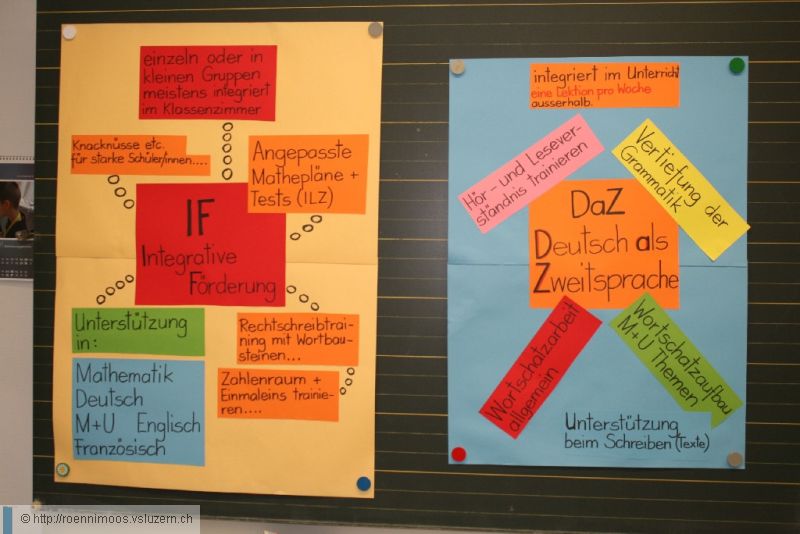 einzeln oder in
kleinen Gruppen
meistens integriert
im Klassenzimmer
Knacknüsse etc.
für starke Schüler/innen....
Angepasste
Mathepläne +
Tests (ILZ)
IF
Integrative
Förderung
Unterstützung
in:
Mathematik
Deutsch
M+U Englisch
Französisch
Rechtschreibtrai-
ning mit Wortbau-
steinen...
Zahlenraum +
Einmaleins trainie-
ren....
integriert im Unterricht
eine Lektion pro Woche
ausserhalb.
Hör- und Lesever-
ständnis trainieren
Vertiefung der
Grammatik
DaZ
Deutsch als
Zweitsprache
Wortschatzarbeit
allgemein
Wortschatzaufbau
M+U Themen
Unterstützung
beim Schreiben (Texte)
© http://roennimoos.vsluzern.ch